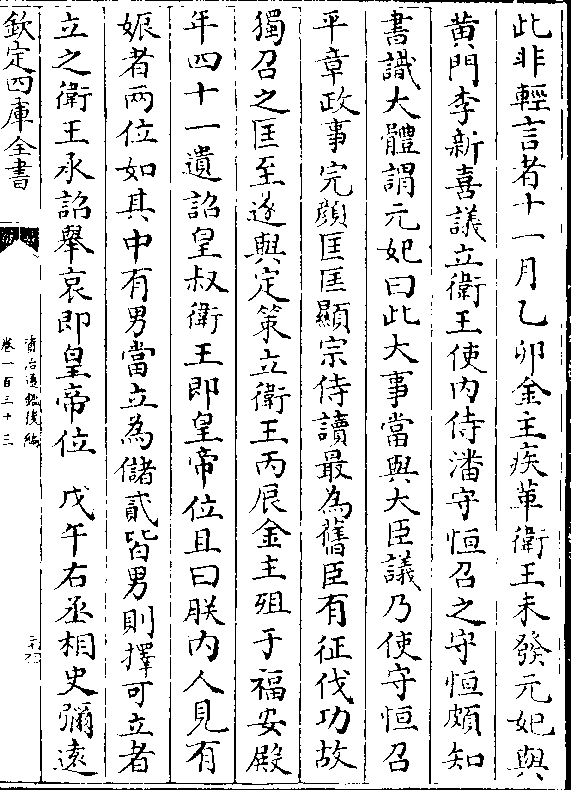 此非輕言者十一月乙卯金主疾革衛王未發元妃與
黄門李新喜議立衛王使内侍潘守恒召之守恒頗知
書識大體謂元妃曰此大事當與大臣議乃使守恒召
平章政事完顔匡匡顯宗侍讀最為舊臣有征伐功故
獨召之匡至遂與定策立衛王丙辰金主殂于福安殿
年四十一遺詔皇叔衛王即皇帝位且曰朕内人見有
娠者兩位如其中有男當立為儲貳皆男則擇可立者
立之衛王承詔舉哀即皇帝位 戊午右丞相史彌遠
欽定四庫全書
資治通鑑後編
卷一百三十三